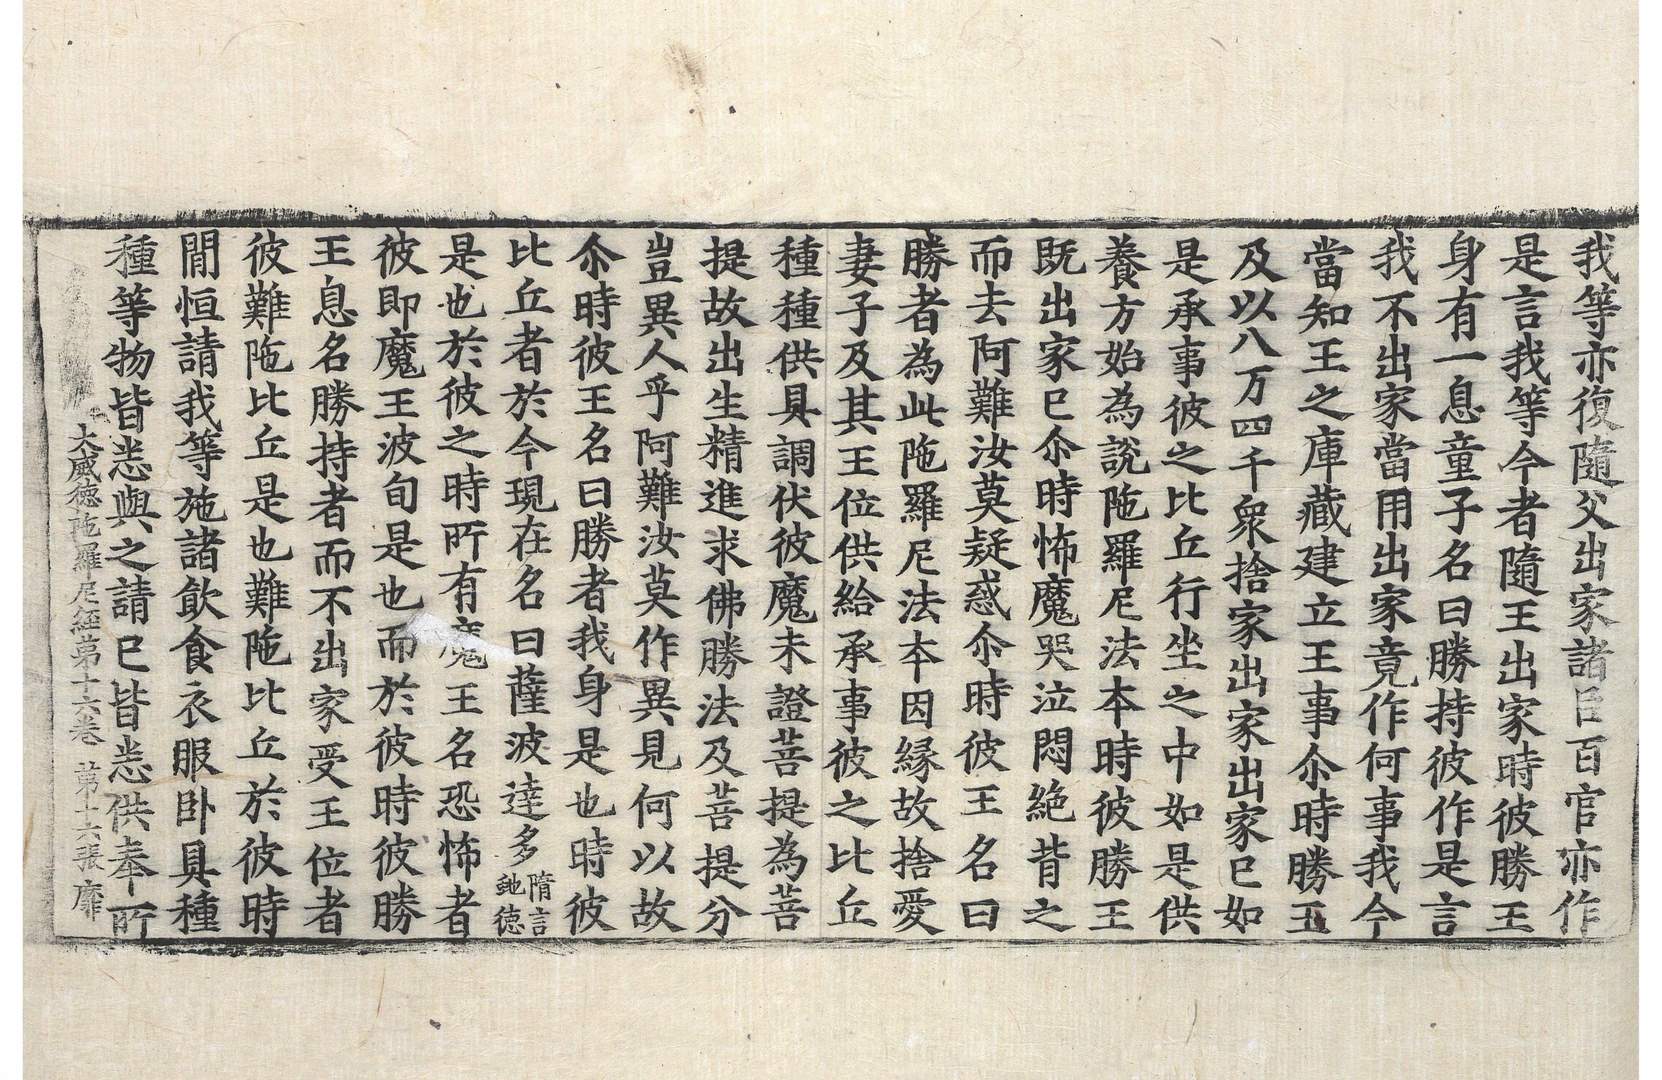 我等亦復隨父出家諸臣百官亦作
是言我等今者隨王出家時彼勝王
身有一息童子名曰勝持彼作是言
我不出家當用出家竟作何事我今
當知王之庫藏建立王事尒時勝王
及以八万四千衆捨家出家出家已如
是承事彼之比丘行坐之中如是供
養方始為說陁羅尼法本時彼勝王
既出家已尒時怖魔哭泣悶絶背之
而去阿難汝莫疑惑尒時彼王名曰
勝者為此陁羅尼法本因縁故捨愛
妻子及其王位供給承事彼之比丘
種種供具調伏彼魔未證菩提為菩
提故出生精進求佛勝法及菩提分
豈異人乎阿難汝莫作異見何以故
尒時彼王名曰勝者我身是也時彼
比丘者於今現在名曰薩波達多隋言虵德
是也於彼之時所有魔王名恐怖者
彼即魔王波旬是也而於彼時彼勝
王息名勝持者而不出家受王位者
彼難陁比丘是也難陁比丘於彼時
間恒請我等施諸飲食衣服卧具種
種等物皆悉與之請已皆悉供奉所
大威德陁羅尼經第十六卷 第十六張 靡